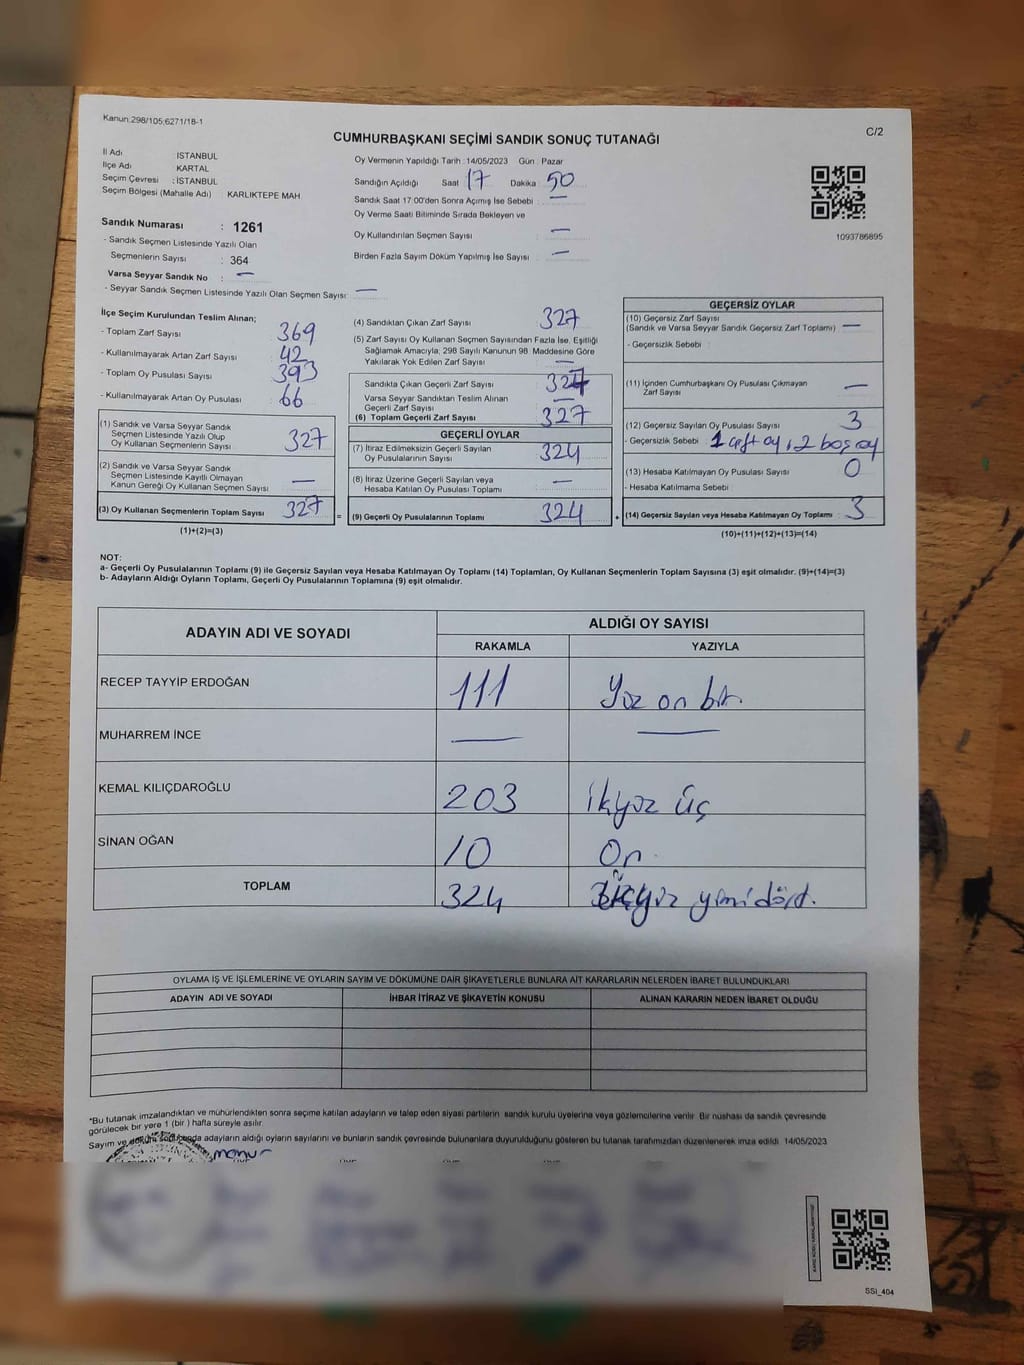 Kanun:298/105;6271/18-1
C/2
CUMHURBAŞKANI SEÇİMİ SANDIK SONUÇ TUTANAĞI
İl Adı İSTANBUL
İlçe Adı KARTAL
Seçim Çevresi : İSTANBUL
Seçim Bölgesi (Mahalle Adı) : KARLIKTEPE MAH
Sandık Numarası : 1261
- Sandık Seçmen Listesinde Yazılı Olan
Seçmenlerin Sayısı : 364
Varsa Seyyar Sandık No : —
- Seyyar Sandık Seçmen Listesinde Yazılı Olan Seçmen Sayısı: —
Oy Vermenin Yapıldığı Tarih : 14/05/2023 Gün : Pazar
Sandığın Açıldığı Saat 17 Dakika 50
Sandık Saat 17:00'den Sonra Açımış İse Sebebi : —
Oy Verme Saati Bitiminde Sırada Bekleyen ve
Oy Kullandırılan Seçmen Sayısı : —
Birden Fazla Sayım Döküm Yapılmış İse Sayısı : —
1093786895
İlçe Seçim Kurulundan Teslim Alınan;
- Toplam Zarf Sayısı : 369
- Kullanılmayarak Artan Zarf Sayısı : 42
- Toplam Oy Pusulası Sayısı : 393
- Kullanılmayarak Artan Oy Pusulası : 66
(1) Sandık ve Varsa Seyyar Sandık
Seçmen Listesinde Yazılı Olup
Oy Kullanan Seçmenlerin Sayısı : 327
(2) Sandık ve Varsa Seyyar Sandık
Seçmen Listesinde Kayıtlı Olmayan
Kanun Gereği Oy Kullanan Seçmen Sayısı : —
(3) Oy Kullanan Seçmenlerin Toplam Sayısı : 327
(1)+(2)=(3)
=
(4) Sandıktan Çıkan Zarf Sayısı : 327
(5) Zarf Sayısı Oy Kullanan Seçmen Sayısından Fazla İse, Eşitliği
Sağlamak Amacıyla; 298 Sayılı Kanunun 98. Maddesine Göre
Yakılarak Yok Edilen Zarf Sayısı : —
Sandıkta Çıkan Geçerli Zarf Sayısı : 327
Varsa Seyyar Sandıktan Teslim Alınan
Geçerli Zarf Sayısı : —
(6) Toplam Geçerli Zarf Sayısı : 327
GEÇERLİ OYLAR
(7) İtiraz Edilmeksizin Geçerli Sayılan
Oy Pusulalarının Sayısı : 324
(8) İtiraz Üzerine Geçerli Sayılan veya
Hesaba Katılan Oy Pusulası Toplamı : —
(9) Geçerli Oy Pusulalarının Toplamı : 324
+
GEÇERSİZ OYLAR
(10) Geçersiz Zarf Sayısı
(Sandık ve Varsa Seyyar Sandık Geçersiz Zarf Toplamı) : —
- Geçersizlik Sebebi :
(11) İçinden Cumhurbaşkanı Oy Pusulası Çıkmayan
Zarf Sayısı : —
(12) Geçersiz Sayılan Oy Pusulası Sayısı : 3
- Geçersizlik Sebebi : 1 çift oy, 2 boş oy
(13) Hesaba Katılmayan Oy Pusulası Sayısı : 0
- Hesaba Katılmama Sebebi :
(14) Geçersiz Sayılan veya Hesaba Katılmayan Oy Toplamı : 3
(10)+(11)+(12)+(13)=(14)
NOT:
a- Geçerli Oy Pusulalarının Toplamı (9) ile Geçersiz Sayılan veya Hesaba Katılmayan Oy Toplamı (14) Toplamları, Oy Kullanan Seçmenlerin Toplam Sayısına (3) eşit olmalıdır. (9)+(14)=(3)
b- Adayların Aldığı Oyların Toplamı, Geçerli Oy Pusulalarının Toplamına (9) eşit olmalıdır.
ADAYIN ADI VE SOYADI ALDIĞI OY SAYISI
RAKAMLA YAZIYLA
RECEP TAYYİP ERDOĞAN 111 Yüz on bir.
MUHARREM İNCE — —
KEMAL KILIÇDAROĞLU 203 ikiyüz üç
SİNAN OĞAN 10 On
TOPLAM 324 Üçyüz yirmi dört.
OYLAMA İŞ VE İŞLEMLERİNE VE OYLARIN SAYIM VE DÖKÜMÜNE DAİR ŞİKAYETLERLE BUNLARA AİT KARARLARIN NELERDEN İBARET BULUNDUKLARI
ADAYIN ADI VE SOYADI İHBAR İTİRAZ VE ŞİKAYETİN KONUSU ALINAN KARARIN NEDEN İBARET OLDUĞU
*Bu tutanak imzalandıktan ve mühürlendikten sonra seçime katılan adayların ve talep eden siyasi partilerin sandık kurulu üyelerine veya gözlemcilerine verilir. Bir nüshası da sandık çevresinde
görülecek bir yere 1 (bir) hafta süreyle asılır.
Sayım ve döküm sonucunda adayların aldığı oyların sayılarını ve bunların sandık çevresinde bulunanlara duyurulduğunu gösteren bu tutanak tarafımızdan düzenlenerek imza edildi. 14/05/2023
SSİ_404